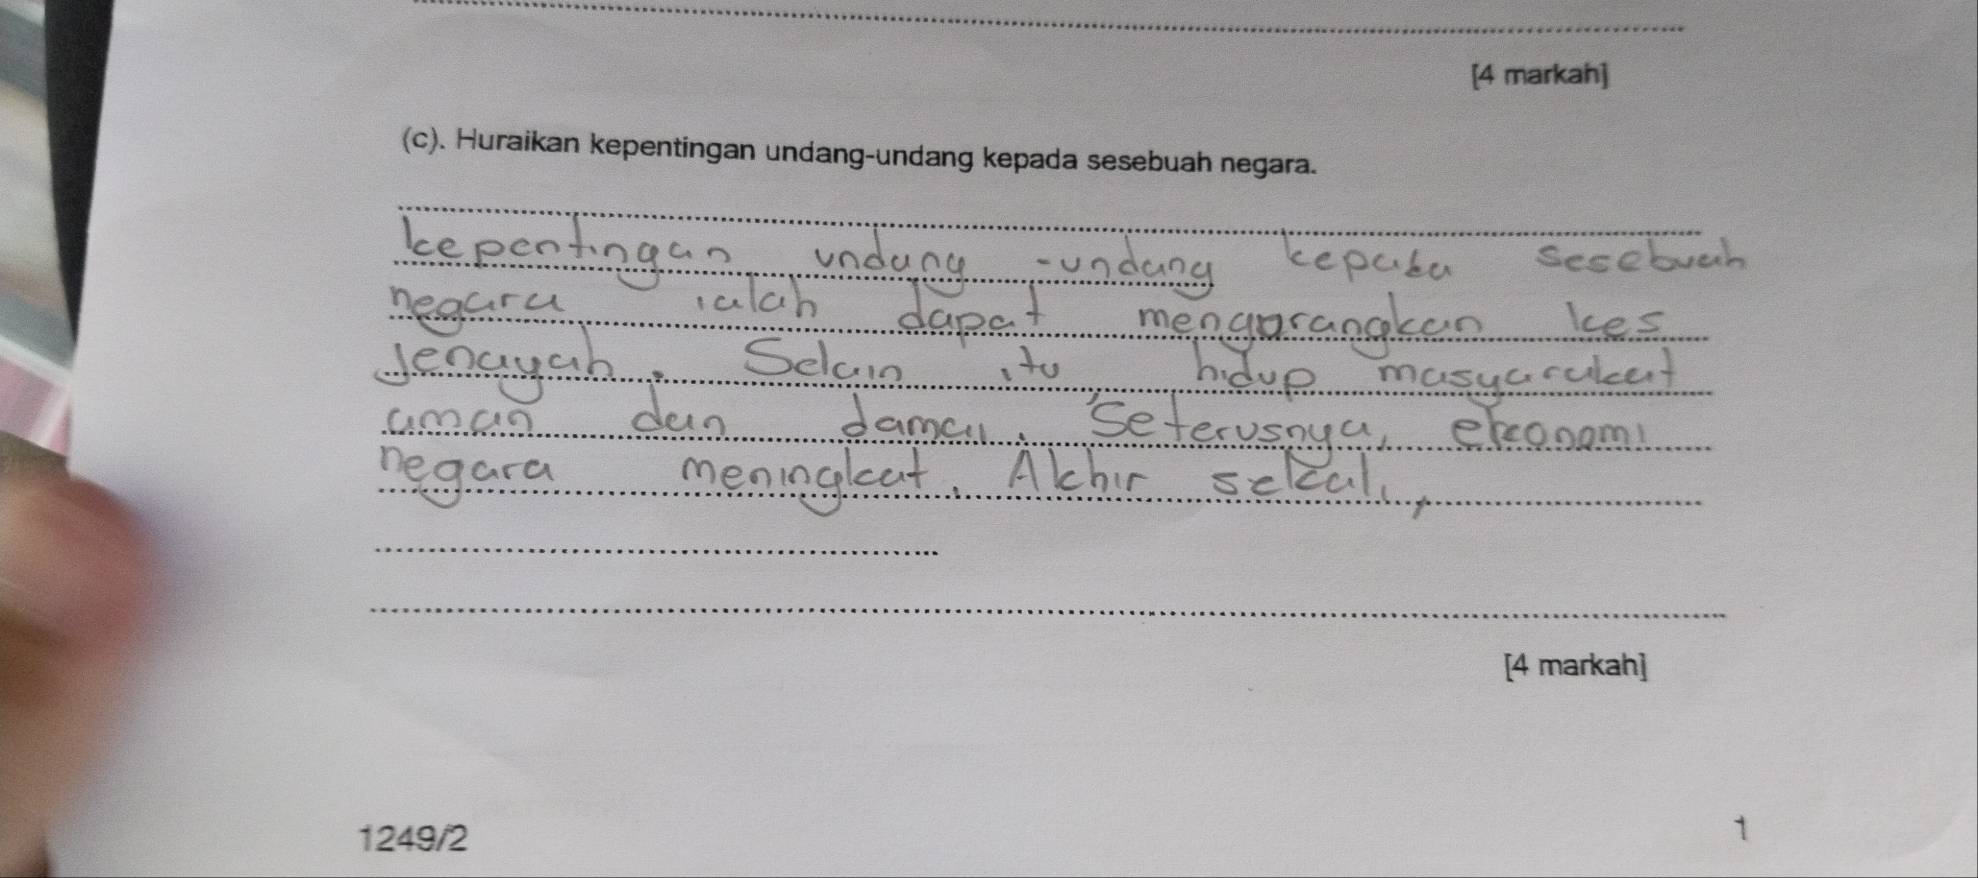 [4 markah]
(c). Huraikan kepentingan undang-undang kepada sesebuah negara.
kepentingan undang-undang kepada sesebuah
negara ialah dapat mengurangkan kes
jenayah. Selain itu, hidup masyarakat
aman dan damai. Seterusnya, ekonomi
negara meningkat. Akhir sekali,
[4 markah]
1249/2
1